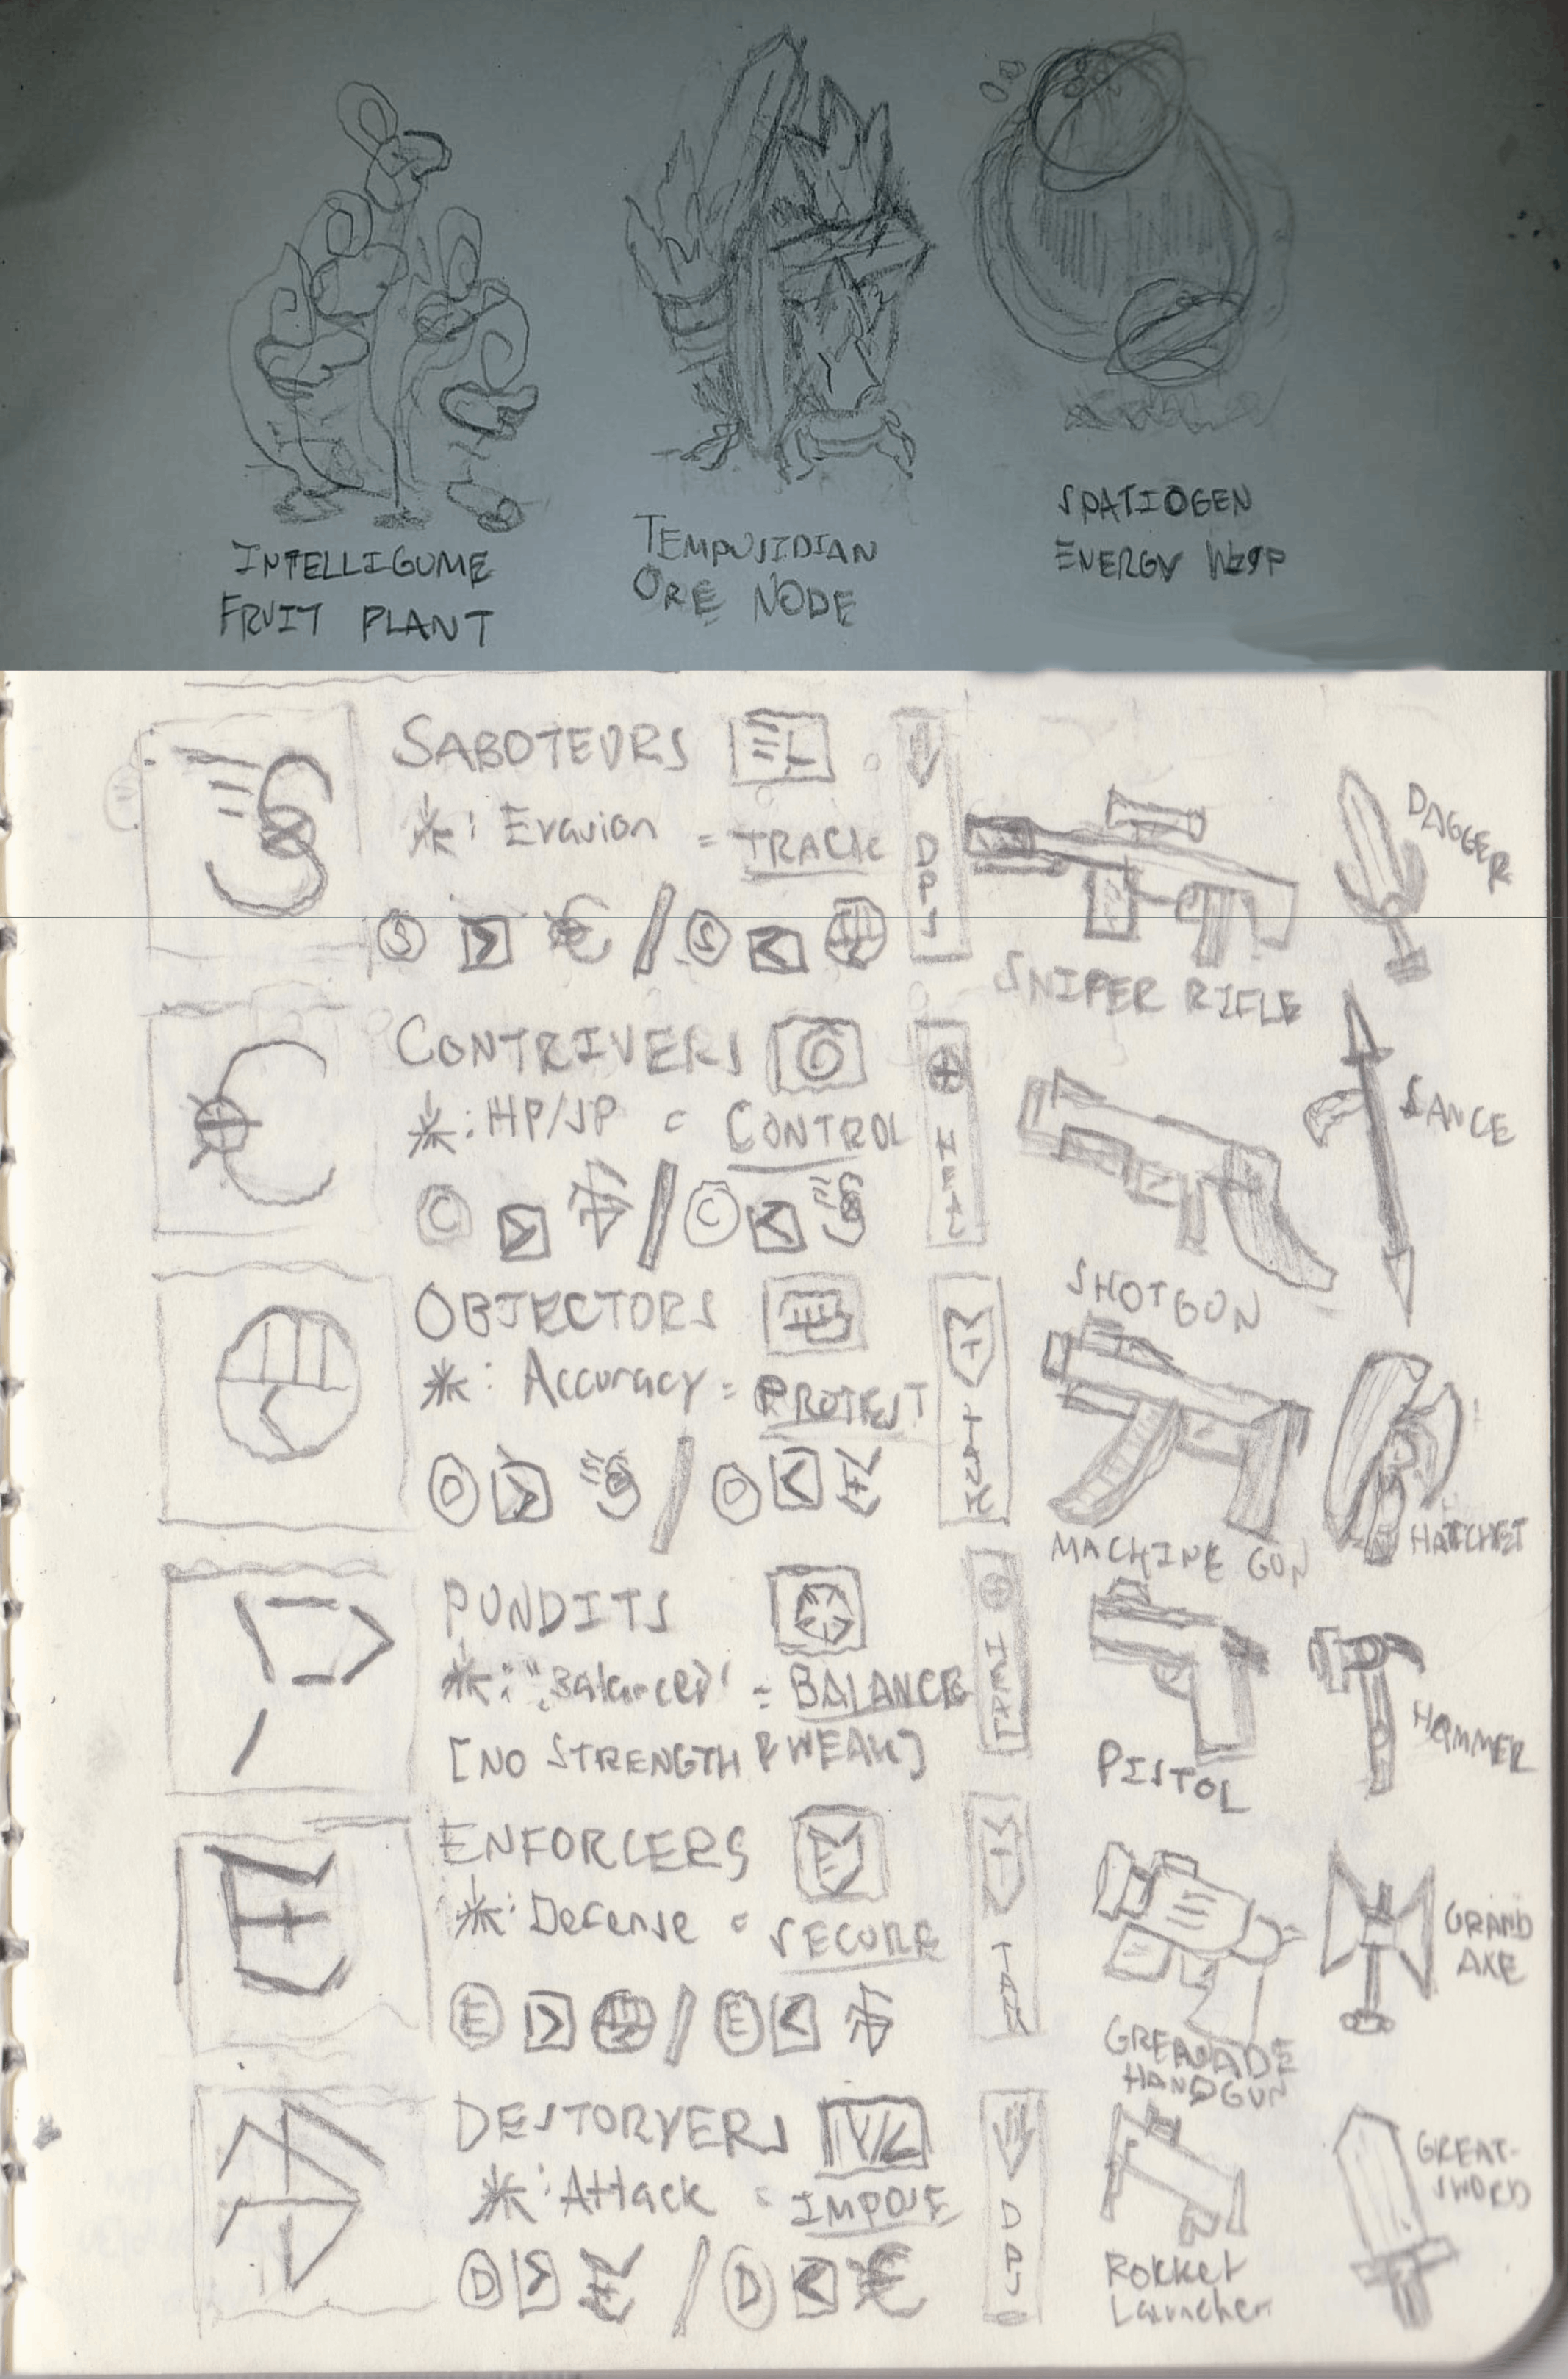 INTELLIGUME
FRUIT PLANT
TEMPUSIDIAN
ORE NODE
SPATIOGEN
ENERGY WISP
SABOTEURS
DPS
DAGGER
*: Evasion = TRACK
S > / S <
SNIPER RIFLE
CONTRIVERS
HEAL
*: HP/SP = CONTROL
LANCE
C > / C <
SHOTGUN
OBJECTORS
TANK
*: Accuracy = PROTEST
O > / O <
MACHINE GUN
HATCHET
PUNDITS
*: "Balanced" = BALANCE
[NO STRENGTH & WEAK]
PISTOL
HAMMER
ENFORCERS
TANK
*: Defense = SECURE
GRAND
AXE
E > / E <
GRENADE
HANDGUN
DESTORYERS
DPS
*: Attack = IMPOSE
GREAT-
SWORD
D > / D <
Rokket
Launcher